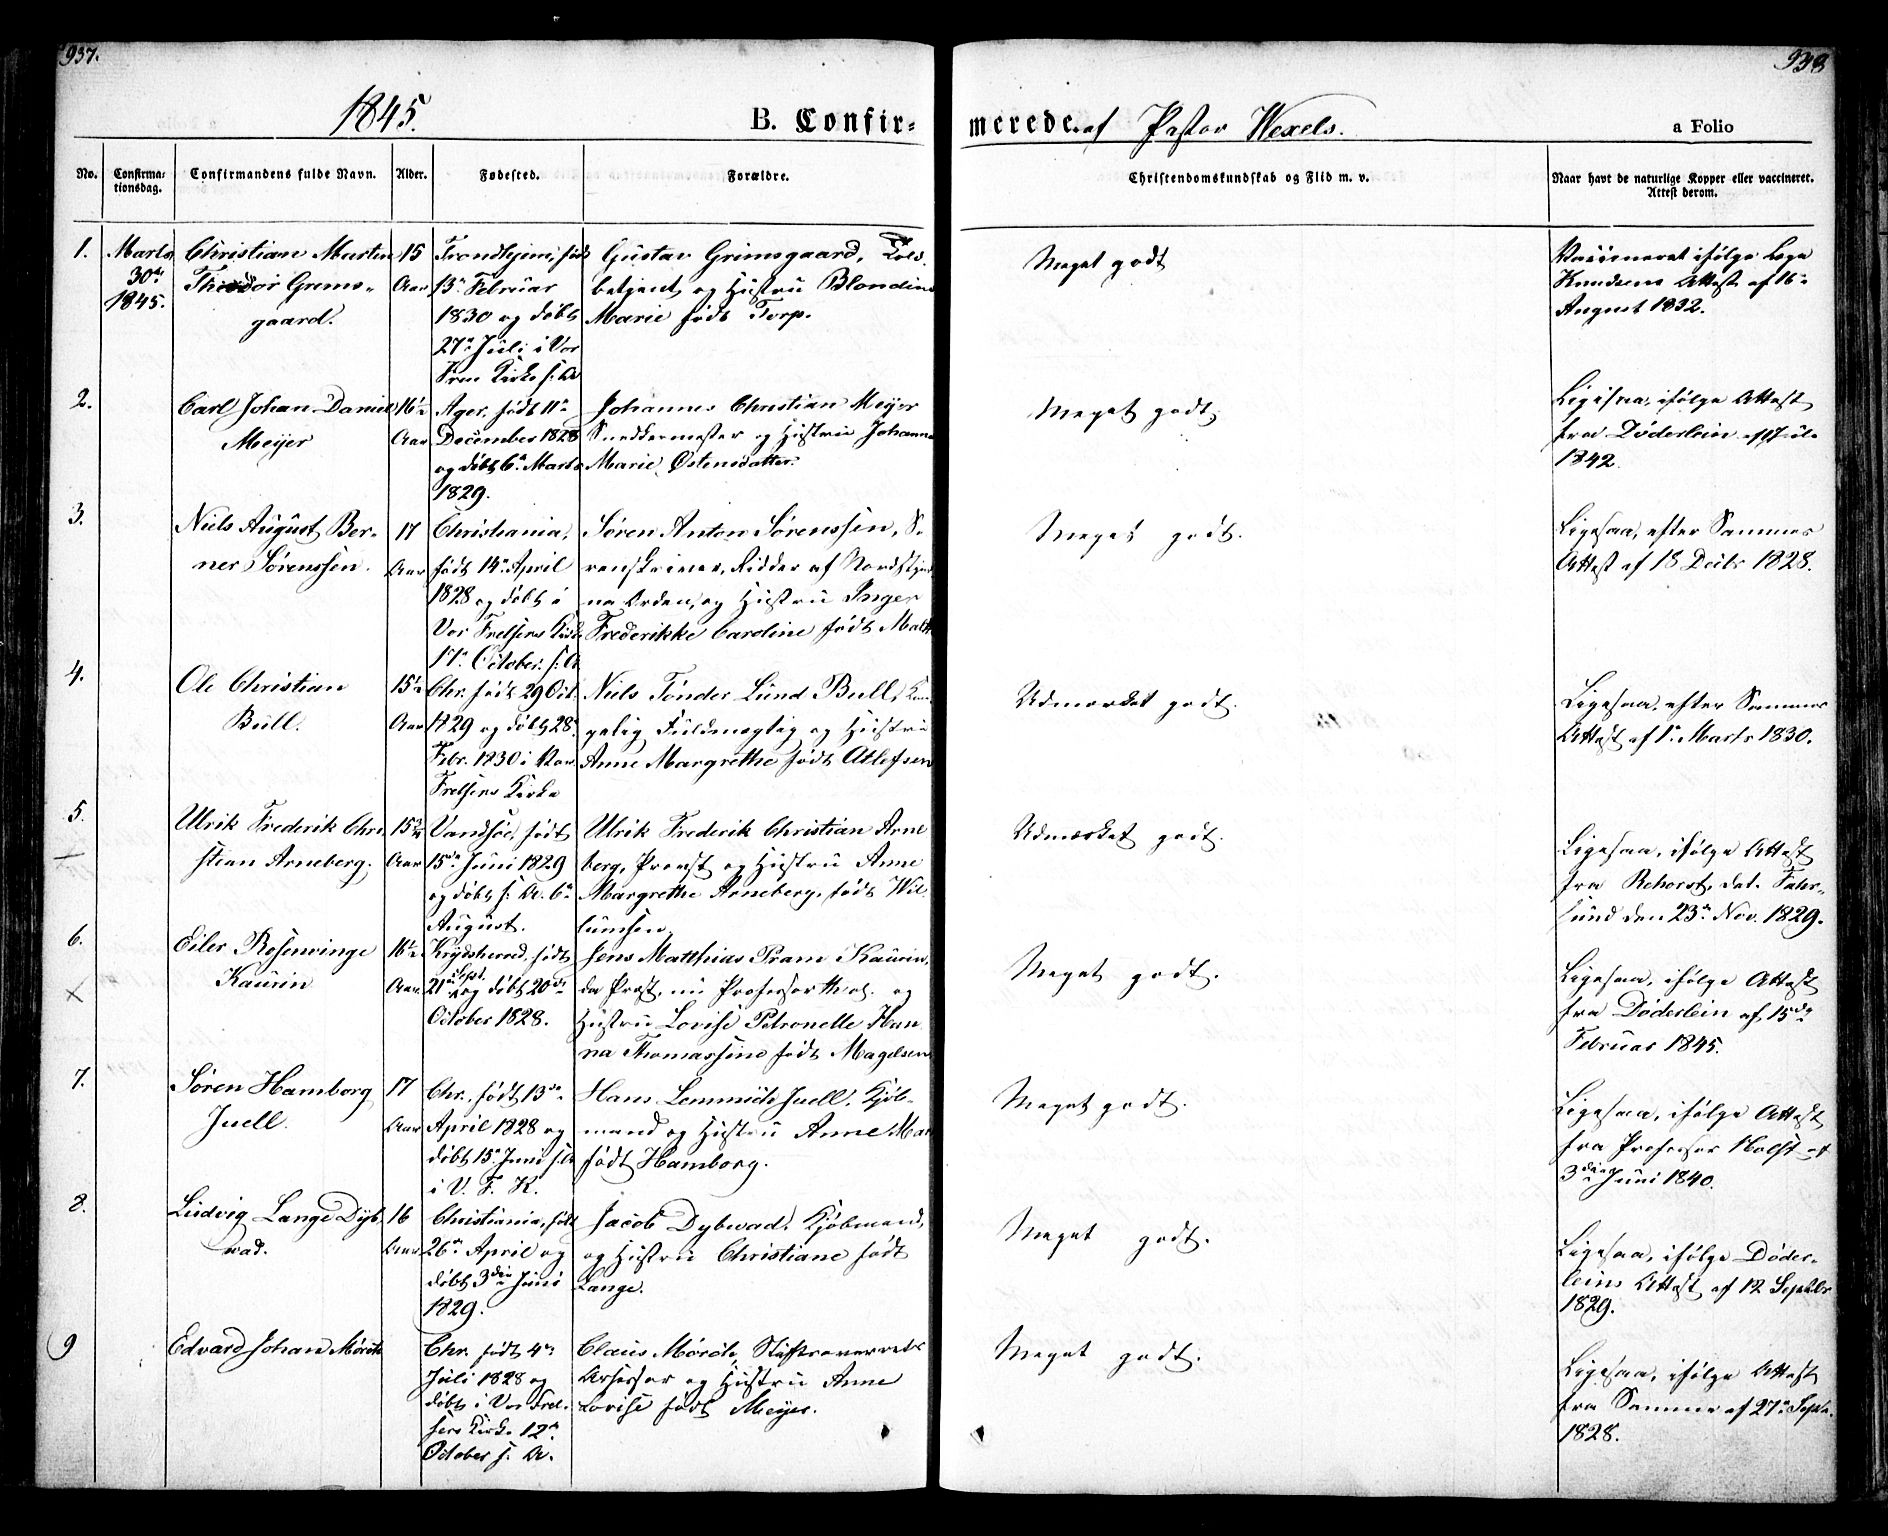 937.
938
1845.
B. Confir-
merede af Pastor Wexels.
a Folio
No.
Confirma-
tionsdag.
Confirmandens fulde Navn.
Alder.
Fødested.
Forældre.
Christendomskundskab og Flid m. v.
Naar havt de naturlige Kopper eller vaccineret.
Attest derom.
1.
Marts
30te
1845.
Christian Martin
Theodor Grims-
gaard.
15
Aar
Trondhjem, født
13de Februar
1830 og døbt
27de Juli i Vor
Frue Kirke s. A.
Gustav Grimsgaard, Told-
betjent og Hustru Blondine
Marie født Torp.
Meget godt
Vaccineret ifølge Læge
Knudsens Attest af 16de
August 1832.
2.
Carl Johan Daniel
Meijer
16½
Aar
Ager, født 11te
December 1828
og døbt 6te Marts
1829.
Johannes Christian Meijer
Snedkermester og Hustru Johanne
Marie Østensdatter.
Meget godt.
Ligesaa, ifølge Attest
fra Døderlein af
1842.
3.
Niels August Ber-
ner Sørenssen.
17
Aar
Christiania,
født 14de April
1828 og døbt i
Vor Frelsers Kirke
17de October s. A.
Søren Anton Sørenssen, S.-
renskriver, Ridder af Nordstjer-
na Orden, og Hustru Inger
Frederikke Caroline født
Meget godt.
Ligesaa, efter Sammes
Attest af 18 Decbr 1828.
4.
Ole Christian
Bull.
15½
Aar
Chr. født 29 Oct.
1829 og døbt 28de
Febr. 1830 i Vor
Frelsers Kirke
Niels Tønder Lund Bull,
gelig Fuldmægtig og Hustru
Anne Margrethe født Atlefsen
Udmærket godt.
Ligesaa, efter Sammes
Attest af 1ste Marts 1830.
5.
Ulrik Frederik Chri-
stian Arneberg.
15¾
Aar
Vandsöe, født
15de Juni 1829
og døbt s. A. 6te
August.
Ulrik Frederik Christian Arne
berg, Provst og Hustru Anne
Margrethe Arneberg, født Wil-
lumsen.
Udmærket godt.
Ligesaa, ifølge Attest
fra Rehorst, dat. Fahr-
sund den 23de Nov. 1829.
6.
Eiler Rosenvinge
Kaurin
16½
Aar
Krydsherred, født
21de Sept. og døbt 20de
October 1828.
Jens Matthias Pram Kaurin,
da Præst, nu Professor theol. og
Hustru Lovise Petronelle Han
na Thomassine født Magelsen
Meget godt.
Ligesaa, ifølge Attest
fra Døderlein af 15de
Februar 1845.
7.
Søren Hamborg
Juell.
17
Aar
Chr. født 13de
April 1828 og
døbt 15de Juni s. A.
i V. F. K.
Hans Lemmich Juell, Kjøb-
mand og Hustru Anne Mar
født Hamborg.
Meget godt.
Ligesaa, ifølge Attest
fra Professor Holst af
3die Juni 1840.
8.
Ludvig Lange Dyb-
wad.
16
Aar
Christiania, født
26de April og
døbt 3die Juni
1829.
Jacob Dybwad, Kjøbmand,
og Hustru Christiane født
Lange.
Meget godt.
Ligesaa, ifølge Døder-
leins Attest af 12 Septbr
1829.
9
Edvard Johan Mørch
Chr. født 4de
Juli 1828 og
døbt i Vor Frel-
sers Kirke 12te
October s. A.
Claus Mørch, Stiftsoverrets
Assessor og Hustru Anne
Lovise født Meijer.
Meget godt.
Ligesaa, ifølge Attest
fra Samme af 27de Septb.
1828.